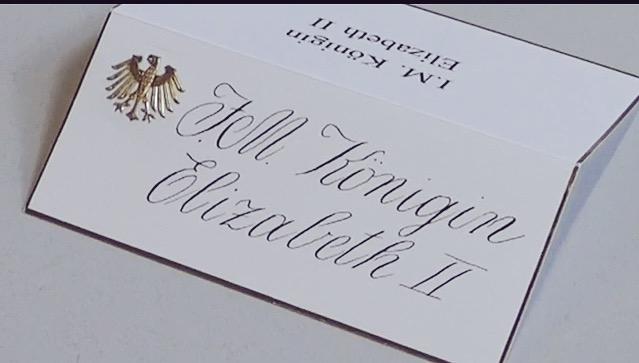 I.M. Königin
Elizabeth II
I.M. Königin
Elizabeth II